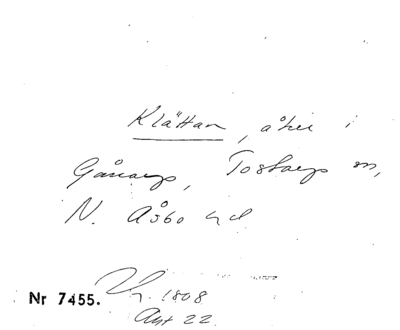 Klättan, åker i
Gånarp, Tostarps sn,
N. Åsbo hd
Nr 7455. 1808
Akt 22